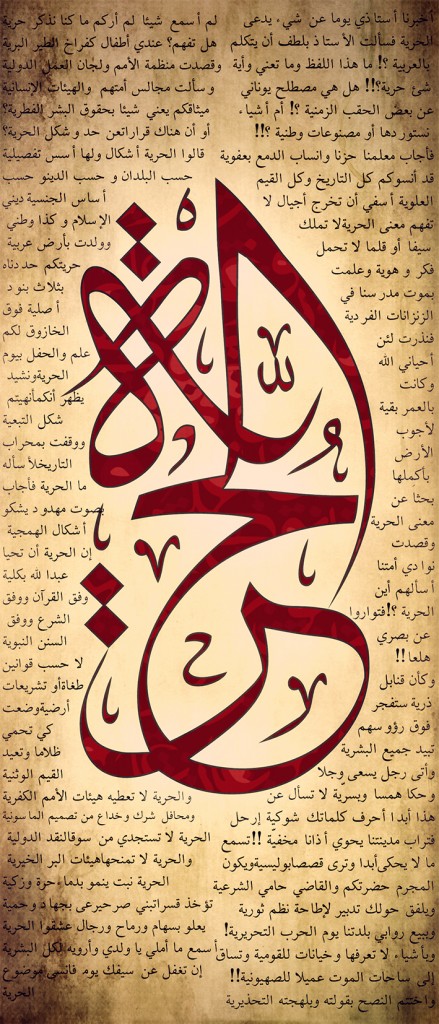 أخبرنا أستاذي يوما عن شيء يدعى
الحرية فسألت الأستاذ بلطف أن يتكلم
بالعربية ؟! ما هذا اللفظ وما تعني وأية
شئ حرية؟!! هل هي مصطلح يوناني
عن بعض الحقب الزمنية ؟! أم أشياء
نستوردها أو مصنوعات وطنية ؟!!
فأجاب معلمنا حزنا وانساب الدمع بعفوية
قد أنسوكم كل التاريخ وكل القيم
العلوية أسفي أن تخرج أجيال لا
تفهم معنى الحرية لا تملك
سيفا أو قلما لا تحمل
فكر و هوية وعلمت
بموت مدرسنا في
الزنزانات الفردية
فنذرت لئن
أحياني الله
وكانت
بالعمر بقية
لأجوب
الأرض
بأكملها
بحثا عن
معنى الحرية
وقصدت
نوادي أمتنا
أسألهم أين
الحرية ؟!فتواروا
عن بصري
هلعا !!
وكأن قنابل
ذرية ستفجر
فوق رؤوسهم
تبيد جميع البشرية
وأتى رجل يسعى وجلا
وحكا همسا وبسرية لا تسأل عن
هذا أبدا أحرف كلماتك شوكية إرحل
فتراب مدينتنا يحوي أذانا مخفية !!تسمع
ما لا يحكى أبدا وترى قصصا بوليسية ويكون
المجرم حضرتكم والقاضي حامي الشرعية
ويلفق حولك تدبير لإطاحة نظم ثورية
ويبيع روابي بلدتنا يوم الحرب التحريرية!
وبأشياء لا تعرفها وخيانات للقومية وتساق
إلى ساحات الموت عميلا للصهيونية!!
واختتم النصح بقولته وبلهجته التحذيرية
لم أسمع شيئا لم أركم ما كنا نذكر حرية
هل تفهم؟ عندي أطفال كفراخ الطير البرية
وقصدت منظمة الأمم ولجان العمل الدولية
وسألت مجالس أمتهم والهيئات الإنسانية
ميثاقكم يعني شيئا بحقوق البشر الفطرية؟
أو أن هناك قرارات عن حد و شكل الحرية؟
قالوا الحرية أشكال ولها أسس تفصيلية
حسب البلدان و حسب الدينو حسب
أساس الجنسية ديني
الإسلام و كذا وطني
وولدت بأرض عربية
حريتكم حددناه
بثلاث بنود
أصلية فوق
الخازوق لكم
علم والحفل بيوم
الحريةونشيد
يظهر أنكمأنهيتم
شكل التبعية
ووقفت بمحراب
التاريخلأسأله
ما الحرية فأجاب
بصوت مهدود يشكو
أشكال الهمجية
إن الحرية أن تحيا
عبدا لله بكلية
وفق القرآن ووفق
الشرع ووفق
السنن النبوية
لا حسب قوانين
طغاةأو تشريعات
أرضيةوضعت
كي تحمي
ظلاما وتعيد
القيم الوثنية
والحرية لا تعطيه هيئات الأمم الكفرية
ومحافل شرك وخداع من تصميم الماسونية
الحرية لا تستجدي من سوق النقد الدولية
والحرية لا تمنحهاهيئات البر الخيرية
الحرية نبت ينمو بدماء حرة وزكية
تؤخذ قسرا تبني صرحيرعى بجهاد وحمية
يعلو بسهام ورماح ورجال عشقوا الحرية
أسمع ما أملي يا ولدي وأرويه لكل البشرية
إن تغفل عن سيفك يوم فانسى موضوع
الحرية
الحرية